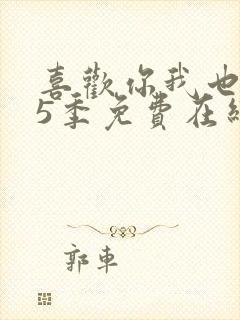 喜歡你我也
5季免費在線
郭車